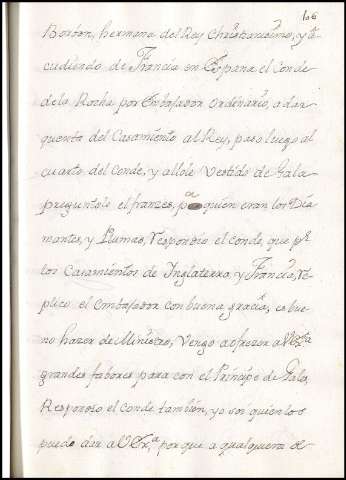 106
Borbon, hermana del Rey Christianissimo, y
cudiendo de Francia en Espana el Conde
dela Rocha por Embaxador ordinario, a dar
quenta del Casamiento al Rey, paso luego al
cuarto del Conde, y allole Vestido de Gala
preguntole el franzes, pa quien eran los Dia
mantes, y Plumas, Respondio el conde, que pª
los Casamientos de Inglaterra y Francia, Re
plico el embaxador con buena gracia, es bue
no hazer de Ministro, Vengo a ofrezer a VExª
grandes fabores para con el Principe de Gala,
Respondio el conde tambien, yo soi quien los
puedo dar a VExª, porque a qualquiera de